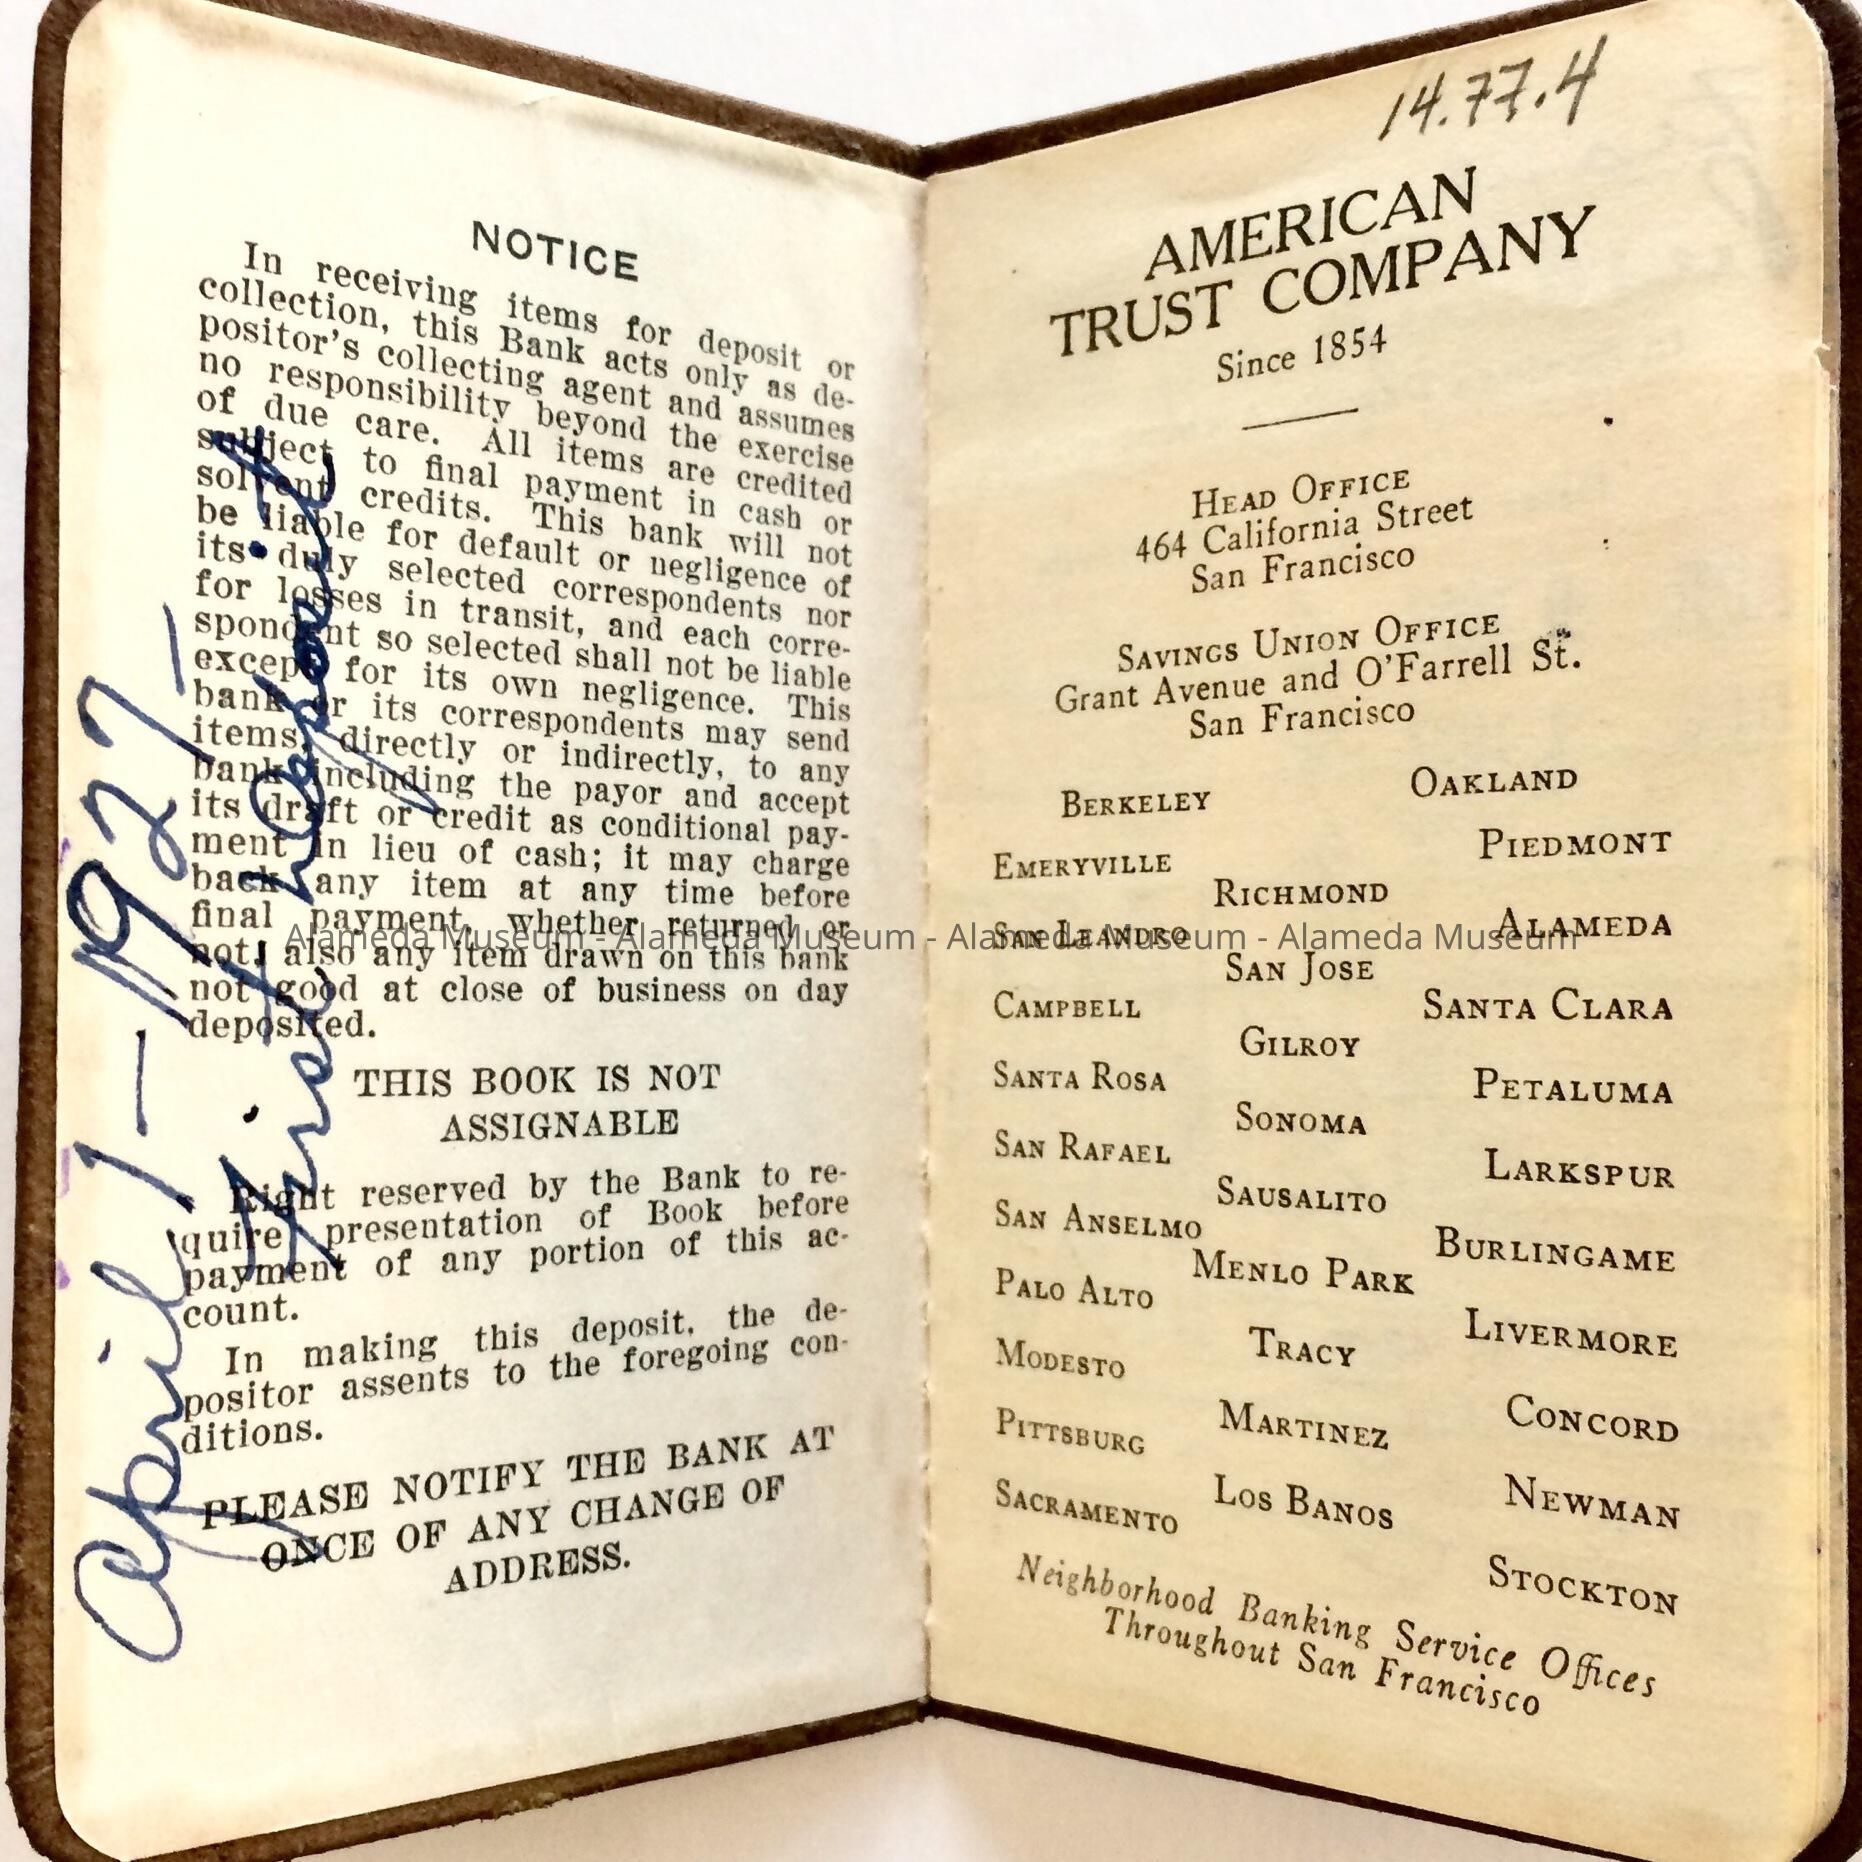 NOTICE
In receiving items for deposit or
collection, this Bank acts only as de-
positor's collecting agent and assumes
no responsibility beyond the exercise
of due care. All items are credited
subject to final payment in cash or
solvent credits. This bank will not
be liable for default or negligence of
its duly selected correspondents nor
for losses in transit, and each corre-
spondent so selected shall not be liable
except for its own negligence. This
bank or its correspondents may send
items, directly or indirectly, to any
bank including the payor and accept
its draft or credit as conditional pay-
ment in lieu of cash; it may charge
back any item at any time before
final payment, whether returned or
not, also any item drawn on this bank
not good at close of business on day
deposited.
THIS BOOK IS NOT
ASSIGNABLE
Right reserved by the Bank to re-
quire presentation of Book before
payment of any portion of this ac-
count.
In making this deposit, the de-
positor assents to the foregoing con-
ditions.
PLEASE NOTIFY THE BANK AT
ONCE OF ANY CHANGE OF
ADDRESS.
April 1-1927-
First Deposit
14.77.4
AMERICAN
TRUST COMPANY
Since 1854
HEAD OFFICE
464 California Street
San Francisco
SAVINGS UNION OFFICE
Grant Avenue and O'Farrell St.
San Francisco
BERKELEY OAKLAND
EMERYVILLE PIEDMONT
RICHMOND
SAN LEANDRO ALAMEDA
SAN JOSE
CAMPBELL SANTA CLARA
GILROY
SANTA ROSA PETALUMA
SONOMA
SAN RAFAEL LARKSPUR
SAUSALITO
SAN ANSELMO BURLINGAME
MENLO PARK
PALO ALTO LIVERMORE
TRACY
MODESTO CONCORD
MARTINEZ
PITTSBURG NEWMAN
LOS BANOS
SACRAMENTO STOCKTON
Neighborhood Banking Service Offices
Throughout San Francisco
Alameda Museum - Alameda Museum - Alameda Museum - Alameda Museum